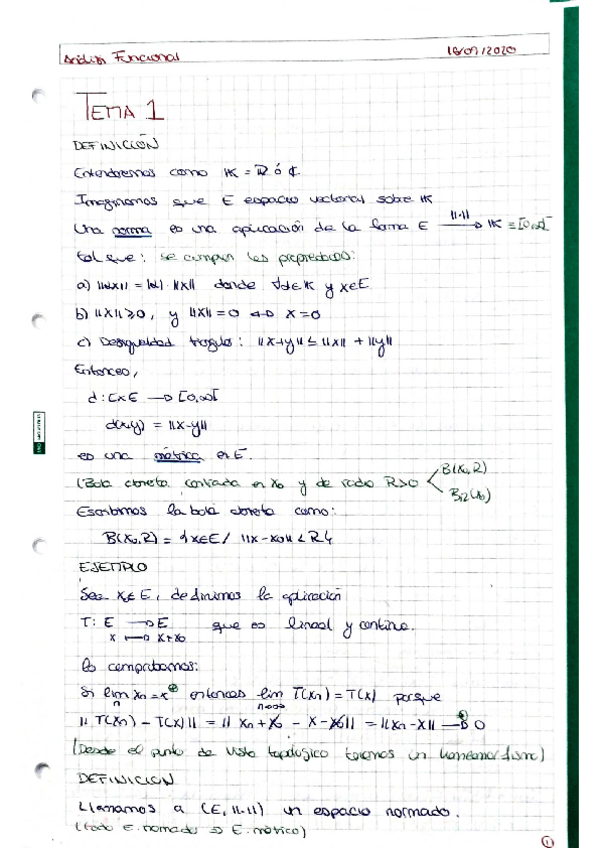 Análisis Funcional 16/09/2020
TEMA 1
DEFINICIÓN
Entenderemos como K = R ó C.
Imaginamos que E espacio vectorial sobre K
Una norma es una aplicación de la forma E —‖·‖→ K = [0,∞[
tal que: se cumplen las propiedades:
a) ‖αx‖ = |α|·‖x‖ donde ∀α∈K y x∈E
b) ‖x‖≥0, y ‖x‖=0 ⟺ x=0
c) Desigualdad triangular: ‖x+y‖ ≤ ‖x‖ + ‖y‖
Entonces,
d: E×E → [0,∞[
d(x,y) = ‖x-y‖
es una métrica en E.
(Bola abierta centrada en x₀ y de radio R>0 < B(x₀,R)
B_R(x₀)
Escribimos la bola abierta como:
B(x₀,R) = {x∈E / ‖x-x₀‖ < R}
EJEMPLO
Sea x₀∈E, definimos la aplicación
T: E → E que es lineal y continua.
x ↦ x+x₀
Lo comprobamos:
Si lim xₙ = x ⊛ entonces lim T(xₙ) = T(x) porque
n n→∞
‖T(xₙ) - T(x)‖ = ‖xₙ + x₀ - x - x₀‖ = ‖xₙ - x‖ —⊛→ 0
(Desde el punto de vista topológico tenemos un homeomorfismo)
DEFINICIÓN
Llamamos a (E, ‖·‖) un espacio normado.
(todo E. normado ⇒ E. métrico)
1